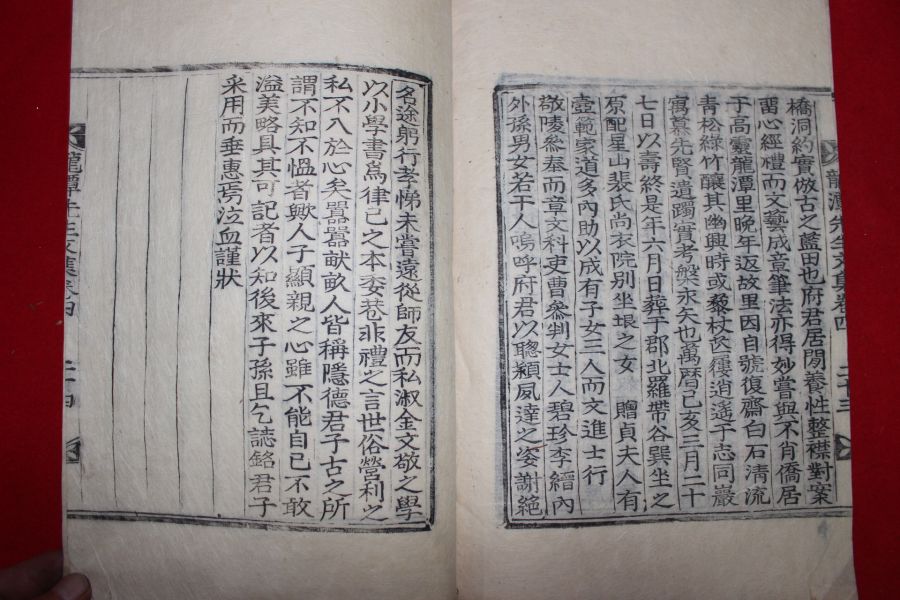 龍潭先生文集卷四
二十三
橋洞約實倣古之藍田也府君居閒養性整襟對案
畱心經禮而文藝成章筆法亦得妙嘗與不肖僑居
于高靈龍潭里晩年返故里因自號復齋白石淸流
青松綠竹釀其幽興時或藜杖芒屨逍遙于志同巖
寓慕先賢遺躅實考槃永矢也萬曆己亥三月二十
七日以壽終是年六月日葬于郡北羅帶谷巽坐之
原配星山裴氏尙衣院別坐垠之女 贈貞夫人有
壼範家道多內助以成有子女三人而文進士行
敬陵參奉而章文科吏曹參判女士人碧珍李繒內
外孫男女若干人嗚呼府君以聰穎夙達之姿謝絕
名途躬行孝悌未嘗遠從師友而私淑金文敬之學
以小學書爲律己之本委巷非禮之言世俗營利之
私不入於心矣嚣嚣献畒人皆稱隱德君子古之所
謂不知不慍者歟人子顯親之心雖不能自已不敢
溢美略具其可記者以知後來子孫且乞誌銘君子
采用而垂惠焉泣血謹狀
龍潭先生文集卷四
二十四